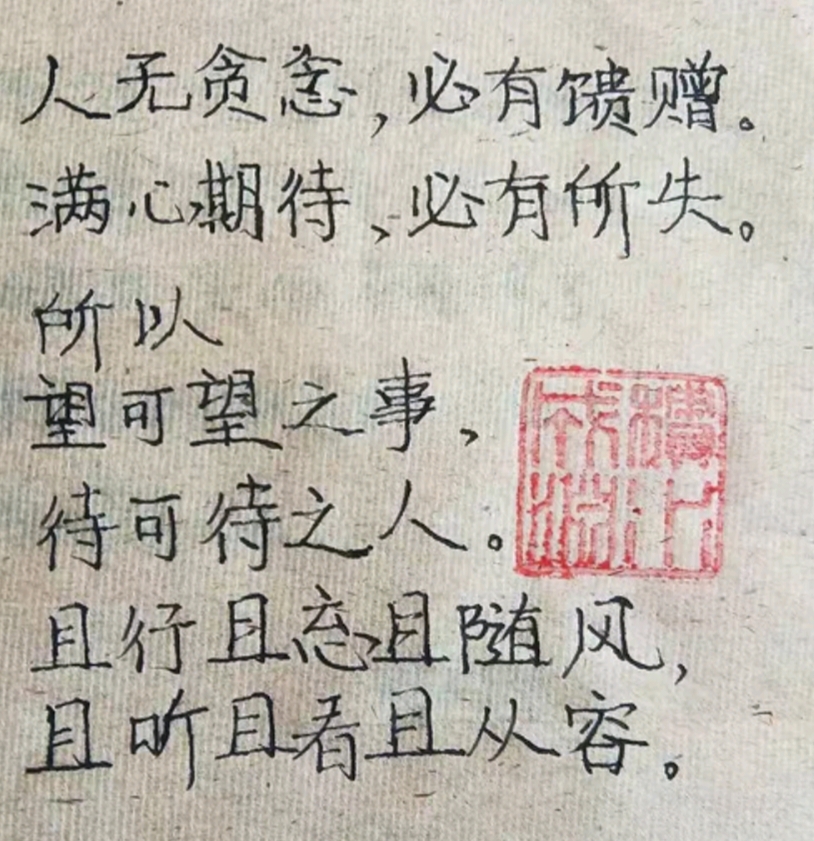 人无贪念,必有馈赠。
满心期待,必有所失。
所以
望可望之事,
待可待之人。
且行且忘且随风,
且听且看且从容。